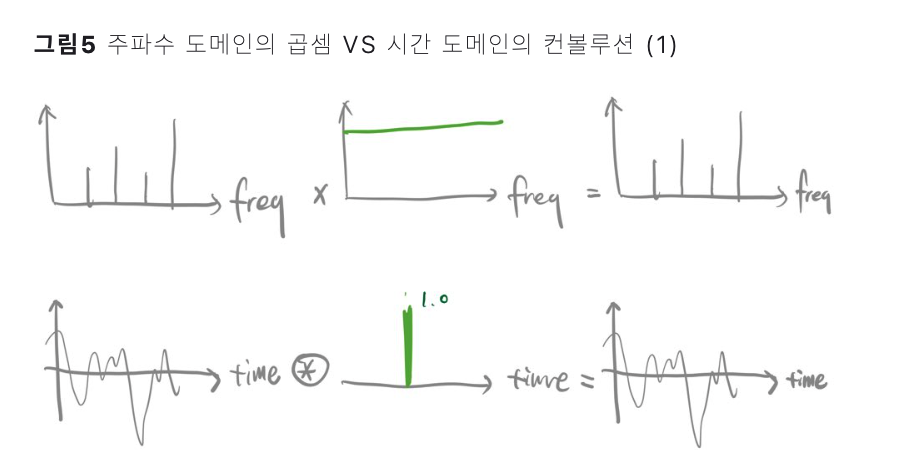 그림5 주파수 도메인의 곱셈 VS 시간 도메인의 컨볼루션 (1)
freq x freq = freq
1.0
time * time = time